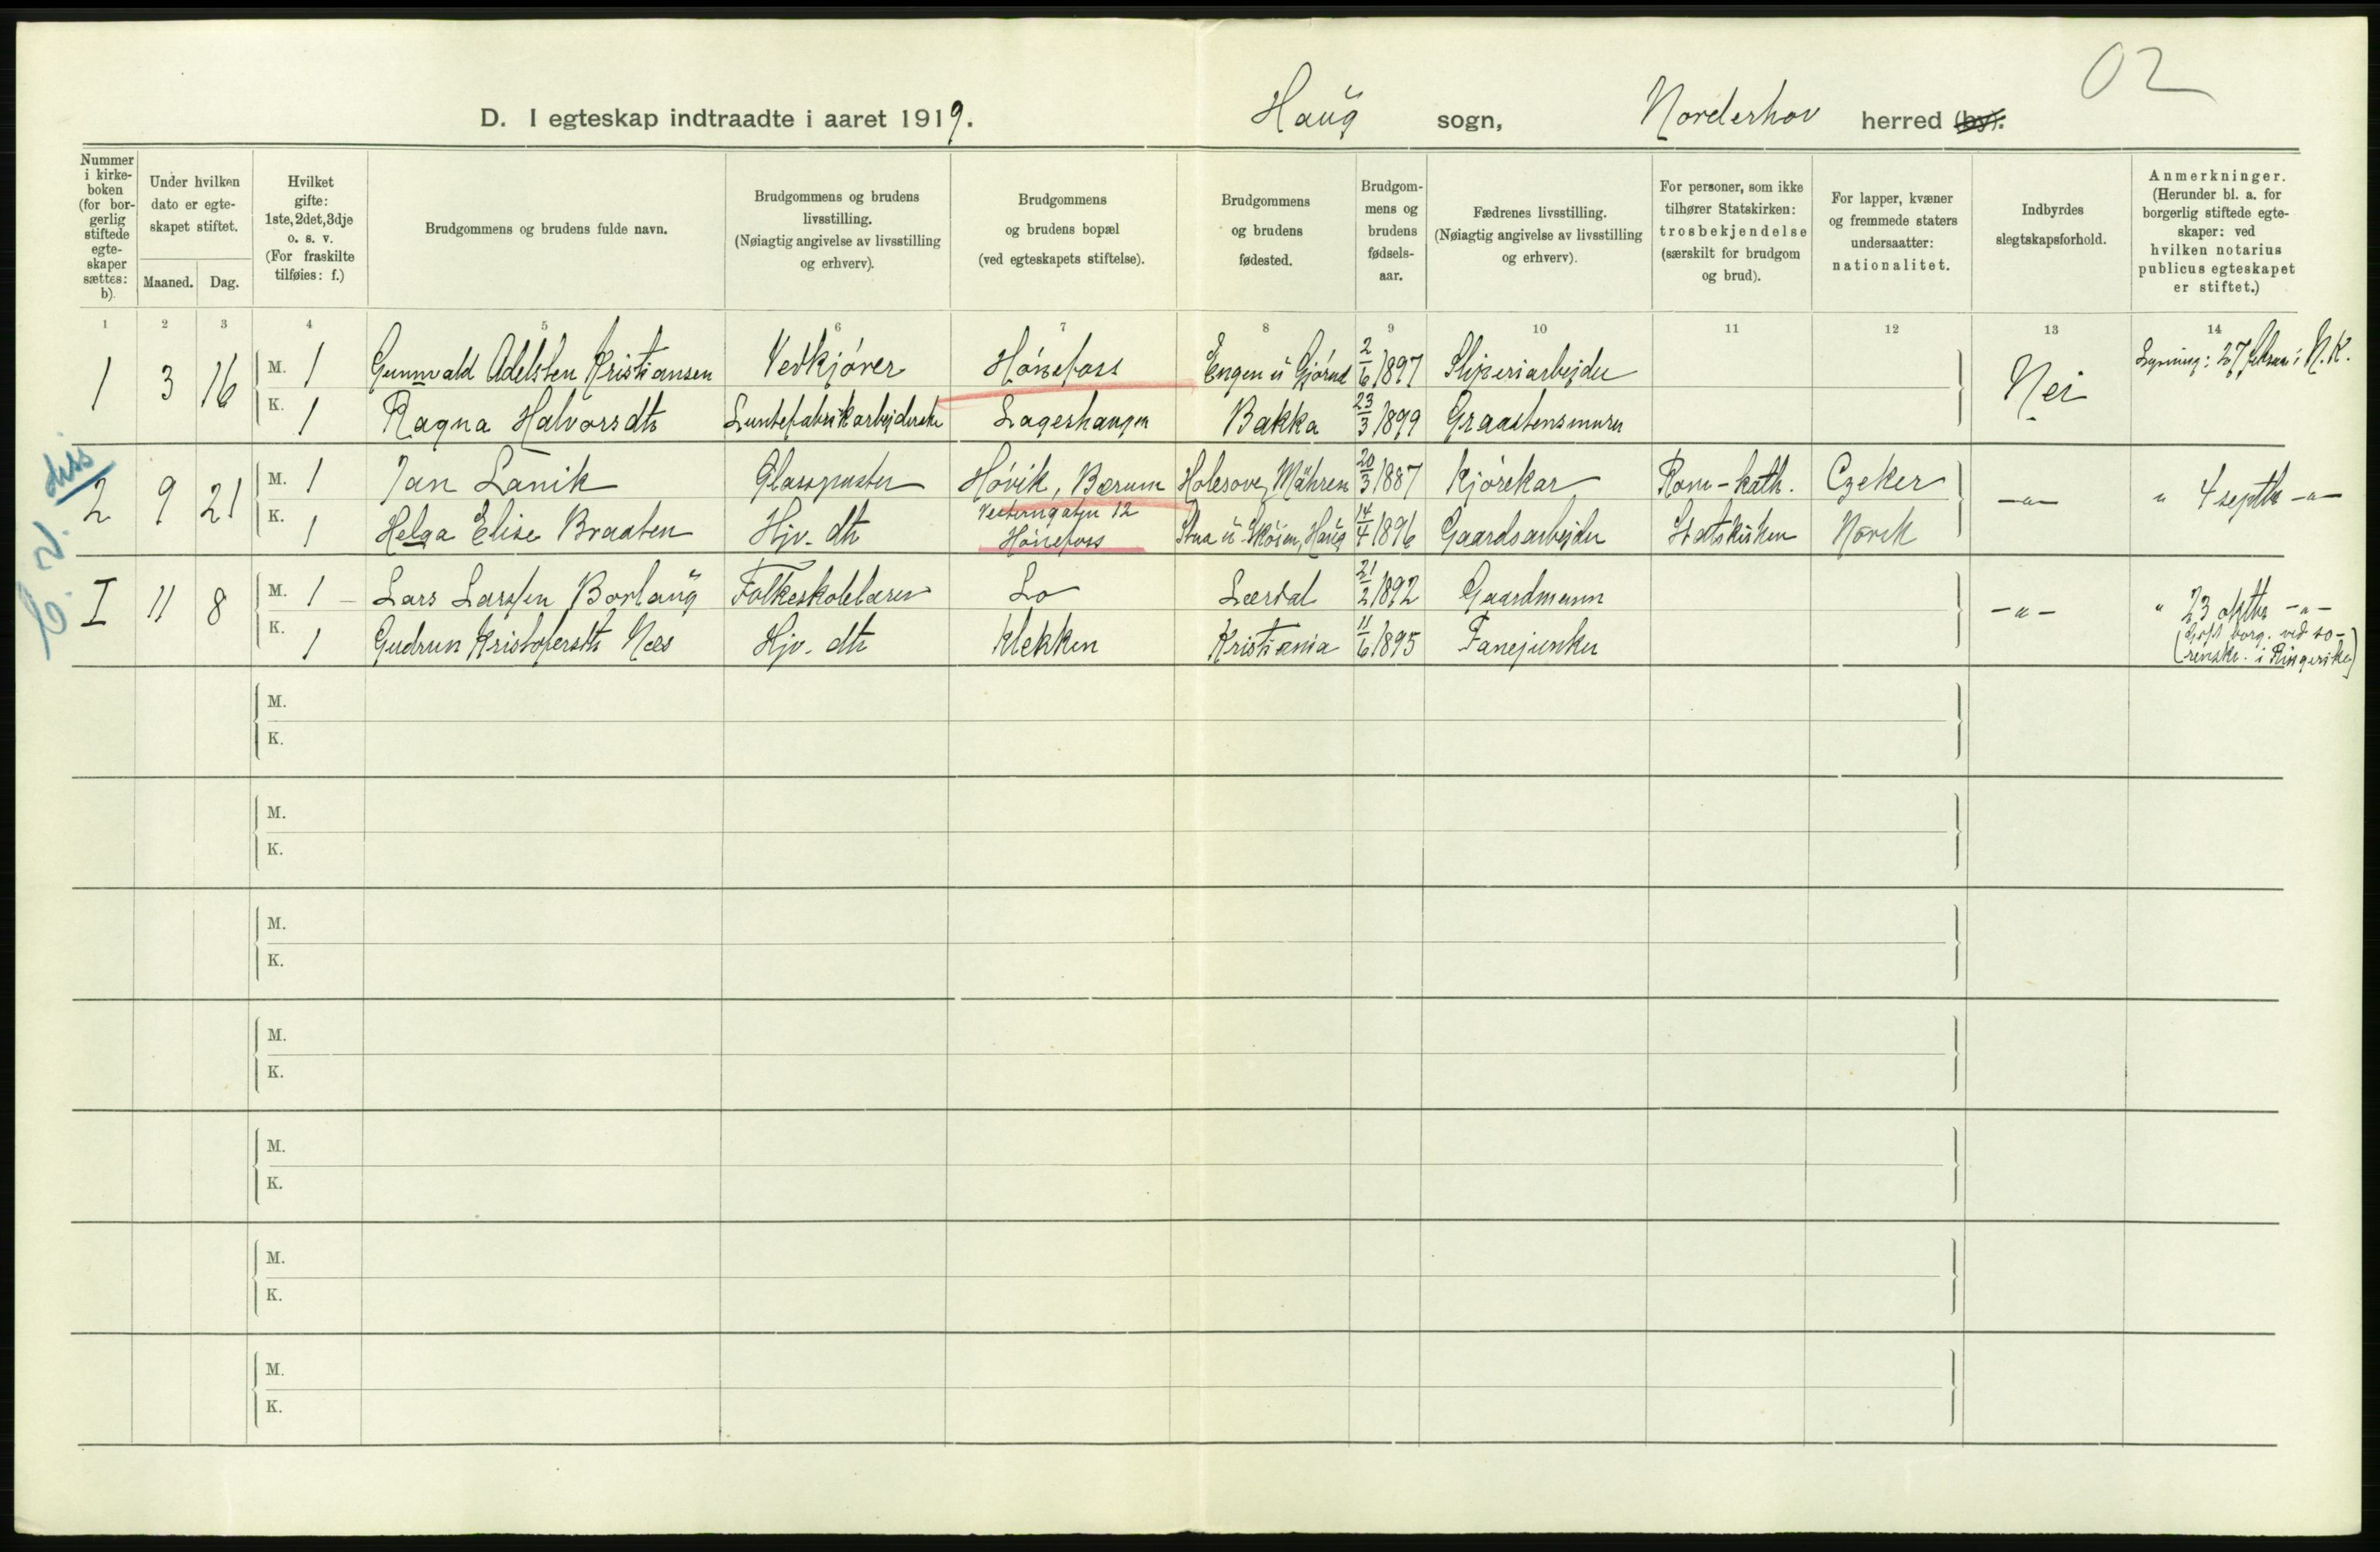 02
D. I egteskap indtraadte i aaret 1919. Haug sogn, Norderhov herred (by).
Nummer i kirkeboken (for borgerlig stiftede egteskaper sættes: b).
Under hvilken dato er egteskapet stiftet.
Maaned. Dag.
Hvilket gifte: 1ste, 2det, 3dje o. s. v. (For fraskilte tilføies: f.)
Brudgommens og brudens fulde navn.
Brudgommens og brudens livsstilling. (Nøiagtig angivelse av livsstilling og erhverv).
Brudgommens og brudens bopæl (ved egteskapets stiftelse).
Brudgommens og brudens fødested.
Brudgommens og brudens fødselsaar.
Fædrenes livsstilling. (Nøiagtig angivelse av livsstilling og erhverv).
For personer, som ikke tilhører Statskirken: trosbekjendelse (særskilt for brudgom og brud).
For lapper, kvæner og fremmede staters undersaatter: nationalitet.
Indbyrdes slegtskapsforhold.
Anmerkninger. (Herunder bl. a. for borgerlig stiftede egteskaper: ved hvilken notarius publicus egteskapet er stiftet.)
1 2 3 4 5 6 7 8 9 10 11 12 13 14
1 3 16 M. 1 Gunnvald Adelsten Kristiansen Vedkjører Hønefoss Engen u Gjørud 2/6 1897 Sliperiarbejder Nei Lysning: 27 februar i N. K.
K. 1 Ragna Halvorsdtr Luntefabrikarbejderske Lageshaugen Bakka 23/3 1899 Graastensmurer
2 9 21 M. 1 Jan Lanik Glasspuster Høvik, Bærum Holesove, Mähren 20/3 1887 Kjørekar Rom-kath. Czeker -"- " 4 septbr -"-
K. 1 Helga Elise Braaten Hjv. dtr Vesterngaten 12 Hønefoss Stua u Skøien, Haug 14/4 1896 Gaardsarbejder Statskirken Norsk
I 11 8 M. 1 Lars Larssen Borlaug Folkeskolelærer Lo Lærdal 21/2 1892 Gaardmann -"- " 23 oktbr -"-
K. 1 Gudrun Kristofersdtr Næs Hjv. dtr Klekken Kristiania 11/6 1895 Fanejunker (gift borg. ved sorenskr. i Ringerike)
M.
K.
M.
K.
M.
K.
M.
K.
M.
K.
M.
K.
M.
K.